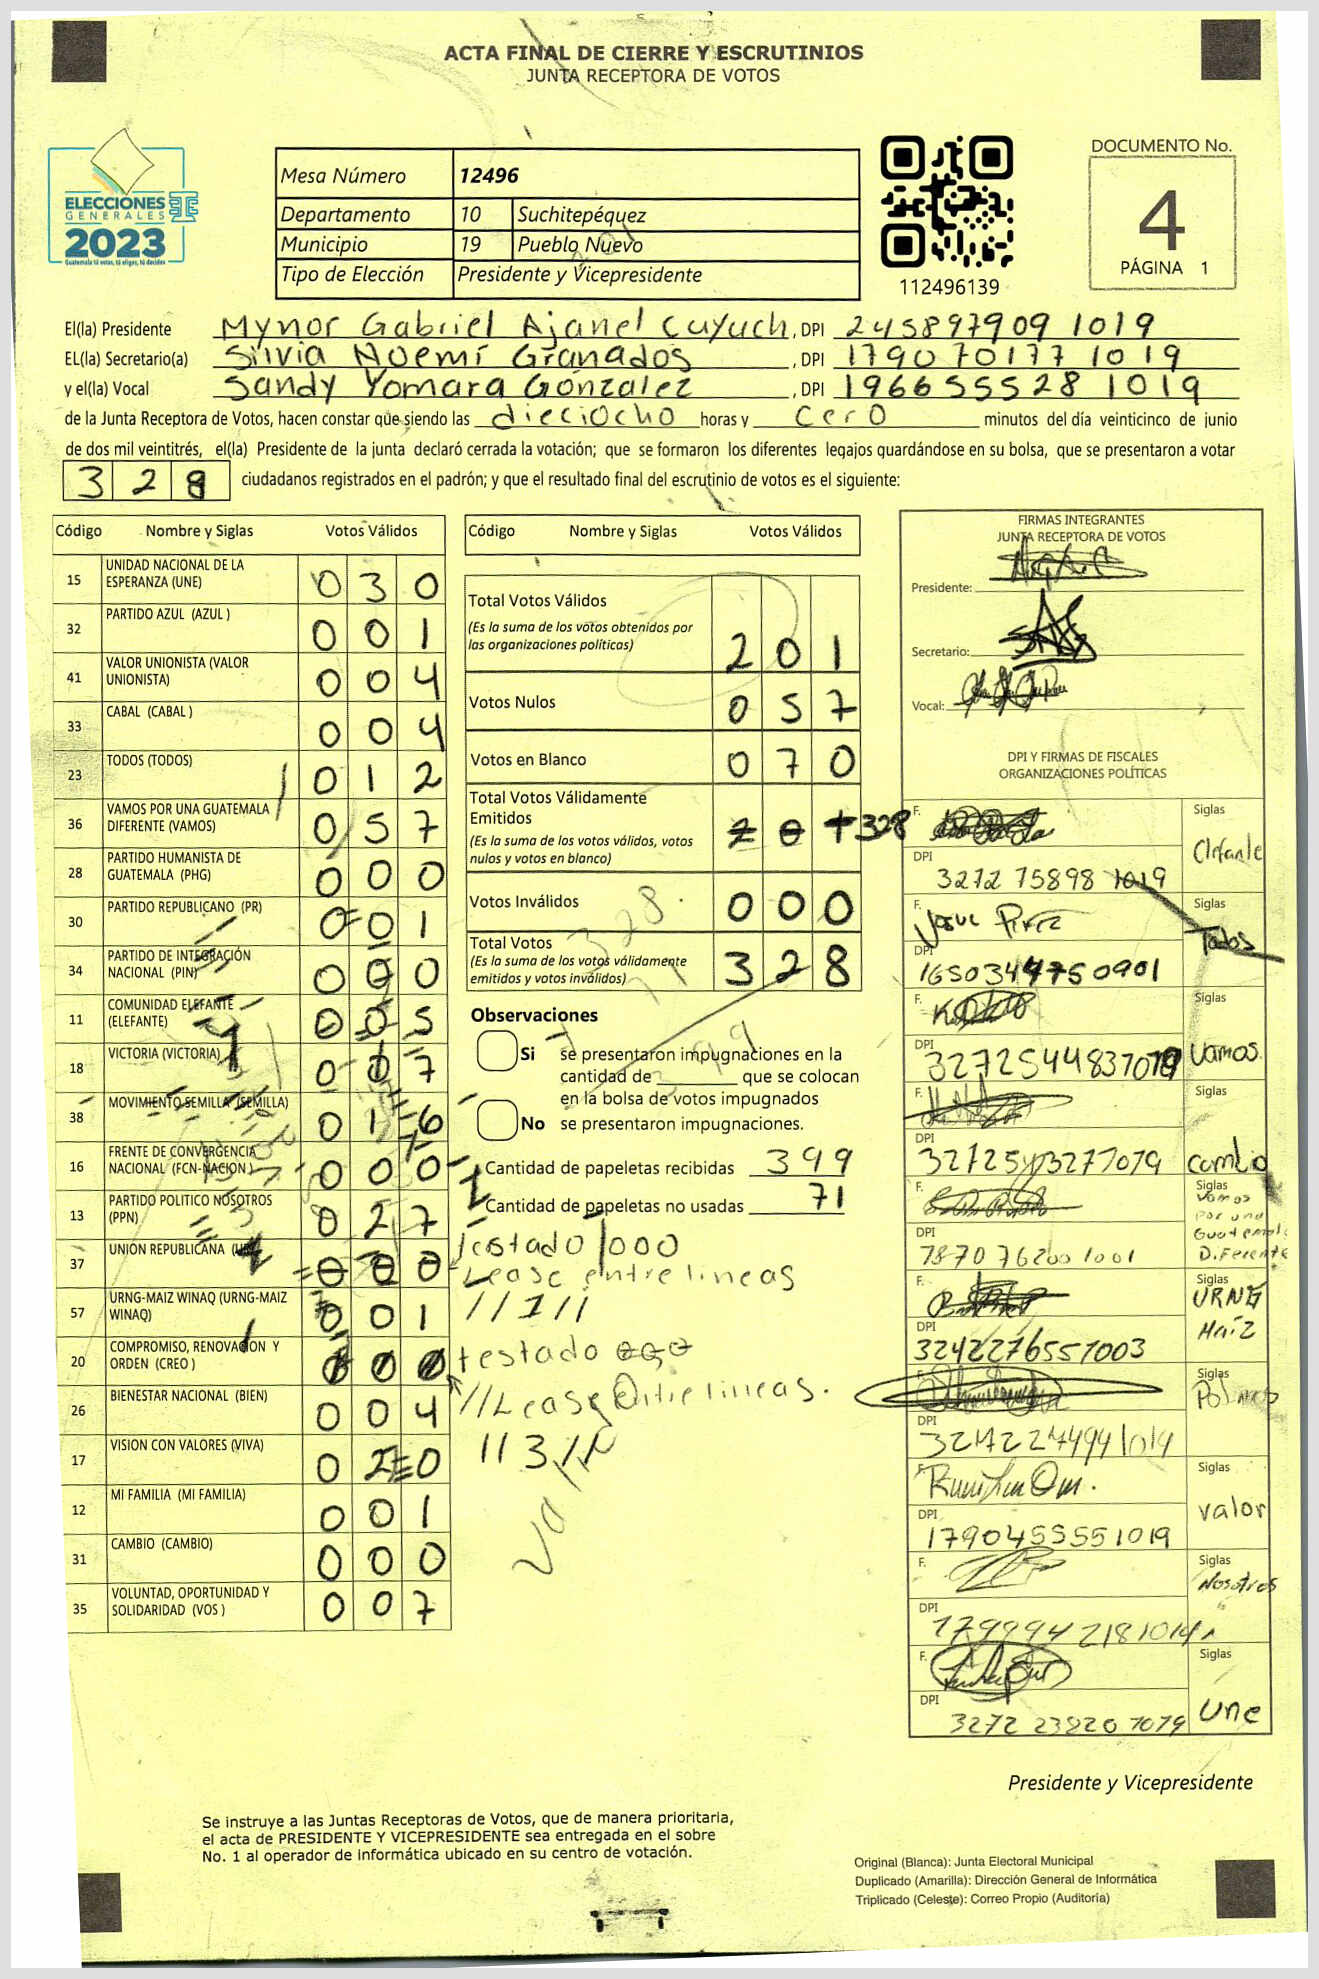 ACTA FINAL DE CIERRE Y ESCRUTINIOS
JUNTA RECEPTORA DE VOTOS
ELECCIONES
GENERALES
2023
Guatemala tú votas, tú eliges, tú decides
Mesa Número 12496
Departamento 10 Suchitepéquez
Municipio 19 Pueblo Nuevo
Tipo de Elección Presidente y Vicepresidente
112496139
DOCUMENTO No.
4
PÁGINA 1
El(la) Presidente Mynor Gabriel Ajanel Cuyuch, DPI 245897909 1019
EL(la) Secretario(a) Silvia Noemí Granados, DPI 179070177 1019
y el(la) Vocal Sandy Yomara González, DPI 196655528 1019
de la Junta Receptora de Votos, hacen constar que siendo las dieciocho horas y cero minutos del día veinticinco de junio
de dos mil veintitrés, el(la) Presidente de la junta declaró cerrada la votación; que se formaron los diferentes legajos guardándose en su bolsa, que se presentaron a votar
328 ciudadanos registrados en el padrón; y que el resultado final del escrutinio de votos es el siguiente:
Código Nombre y Siglas Votos Válidos
15 UNIDAD NACIONAL DE LA ESPERANZA (UNE) 030
32 PARTIDO AZUL (AZUL ) 001
41 VALOR UNIONISTA (VALOR UNIONISTA) 004
33 CABAL (CABAL ) 004
23 TODOS (TODOS) 012
36 VAMOS POR UNA GUATEMALA DIFERENTE (VAMOS) 057
28 PARTIDO HUMANISTA DE GUATEMALA (PHG) 000
30 PARTIDO REPUBLICANO (PR) 001
34 PARTIDO DE INTEGRACIÓN NACIONAL (PIN) 000
11 COMUNIDAD ELEFANTE (ELEFANTE) 005
18 VICTORIA (VICTORIA) 007
38 MOVIMIENTO SEMILLA (SEMILLA) 016
16 FRENTE DE CONVERGENCIA NACIONAL (FCN-NACION ) 000
13 PARTIDO POLITICO NOSOTROS (PPN) 027
37 UNION REPUBLICANA 000
57 URNG-MAIZ WINAQ (URNG-MAIZ WINAQ) 001
20 COMPROMISO, RENOVACION Y ORDEN (CREO )
26 BIENESTAR NACIONAL (BIEN) 004
17 VISION CON VALORES (VIVA) 020
12 MI FAMILIA (MI FAMILIA) 001
31 CAMBIO (CAMBIO) 000
35 VOLUNTAD, OPORTUNIDAD Y SOLIDARIDAD (VOS ) 007
Código Nombre y Siglas Votos Válidos
Total Votos Válidos
(Es la suma de los votos obtenidos por
las organizaciones políticas) 201
Votos Nulos 057
Votos en Blanco 070
Total Votos Válidamente
Emitidos
(Es la suma de los votos válidos, votos
nulos y votos en blanco) 328
Votos Inválidos 000
Total Votos
(Es la suma de los votos válidamente
emitidos y votos inválidos) 328
Observaciones
Si se presentaron impugnaciones en la
cantidad de ________ que se colocan
en la bolsa de votos impugnados
No se presentaron impugnaciones.
Cantidad de papeletas recibidas 399
Cantidad de papeletas no usadas 71
testado 000
Lease entre lineas
//1//
testado 000
//Lease entre lineas.
//3//
FIRMAS INTEGRANTES
JUNTA RECEPTORA DE VOTOS
Presidente:
Secretario:
Vocal:
DPI Y FIRMAS DE FISCALES
ORGANIZACIONES POLÍTICAS
F. Siglas
DPI 3272 75898 1019
Siglas Todos
DPI 1650344750901
F. Siglas Vamos
DPI 3272544837019
F. Siglas
DPI
F. Siglas Vamos por una Guatemala Diferente
DPI 787076200 1001
F. Siglas URNG Maíz
DPI 3242276551003
F. Siglas
DPI
F. Siglas valor
DPI 1790455551019
F. Siglas Nosotros
DPI
F. Siglas Une
DPI 3272 23820 1019
Presidente y Vicepresidente
Se instruye a las Juntas Receptoras de Votos, que de manera prioritaria,
el acta de PRESIDENTE Y VICEPRESIDENTE sea entregada en el sobre
No. 1 al operador de informática ubicado en su centro de votación.
Original (Blanca): Junta Electoral Municipal
Duplicado (Amarilla): Dirección General de Informática
Triplicado (Celeste): Correo Propio (Auditoría)